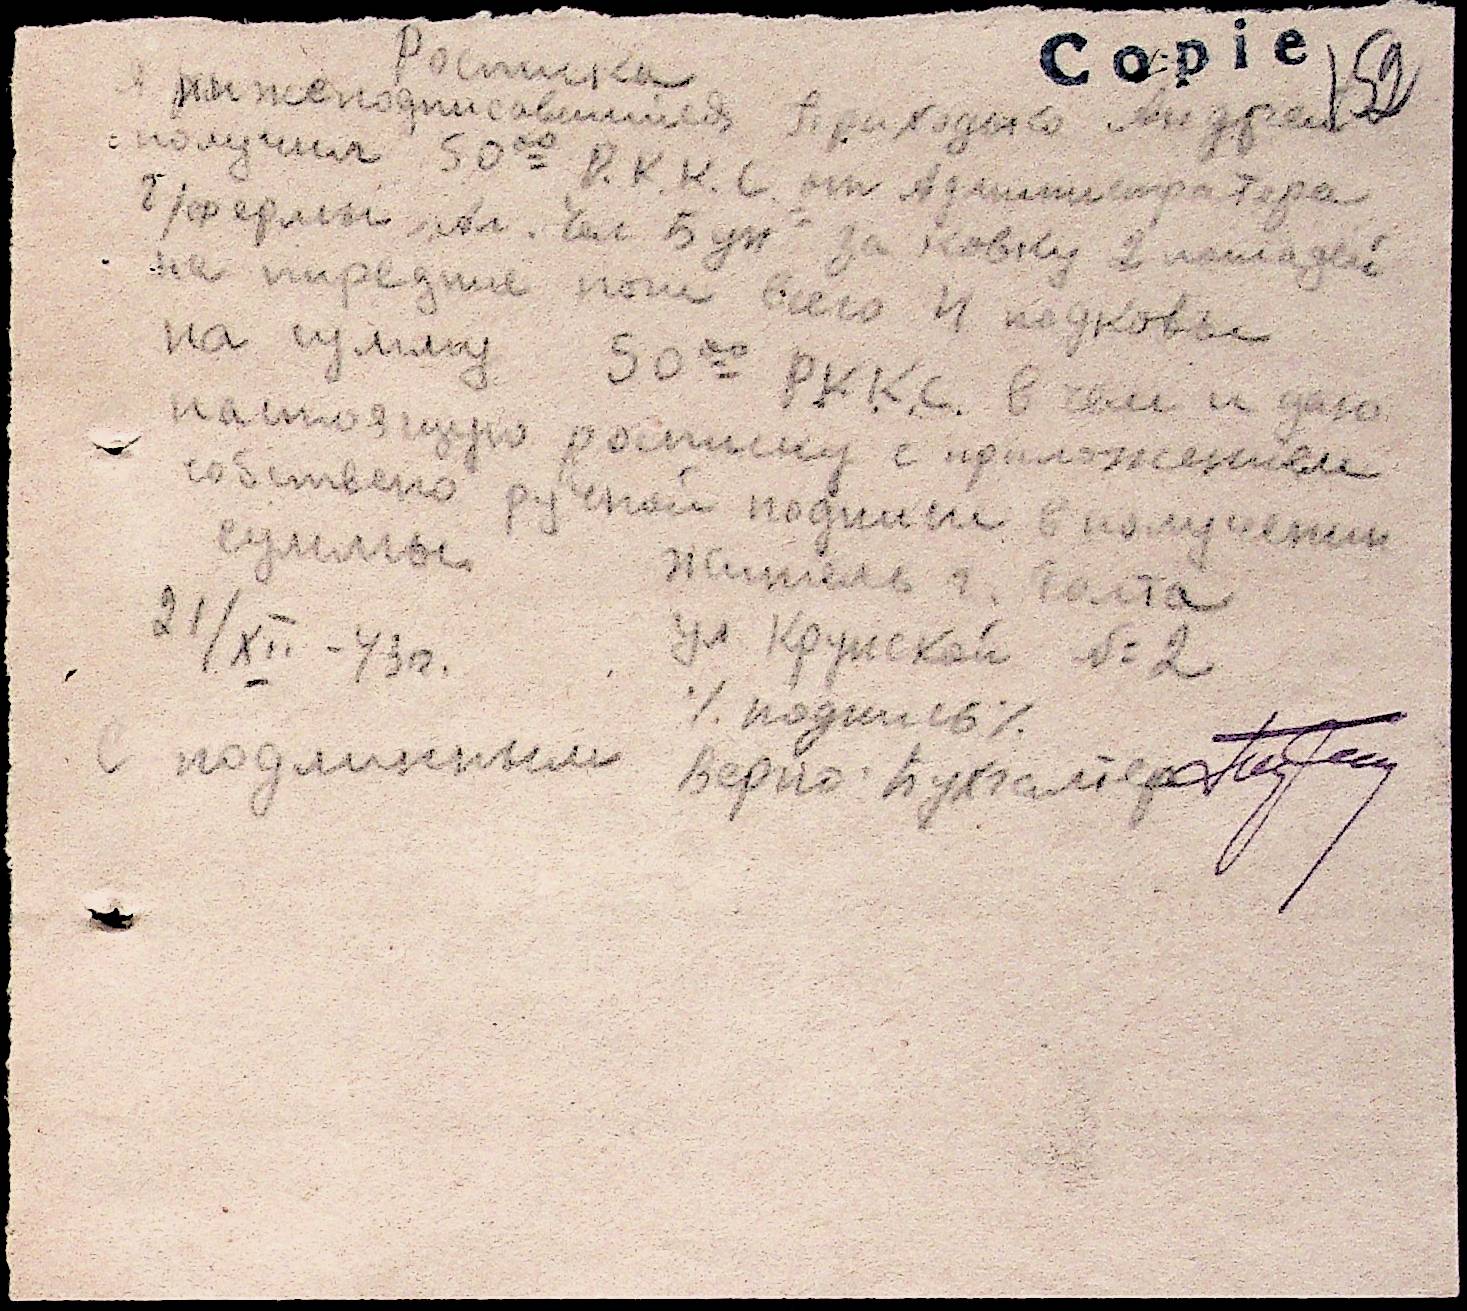 Copie
52
Росписка
Я нижеподписавшийся Приходько Андрей
получил 50 оо Р.К.К.С. от Администратора
г/фермы за ковку 2 лошадей
на передние ноги всего 4 подковы
на сумму 50 оо Р.К.К.С. в чем и даю
настоящую росписку с приложением
собствено ручной подписи в получении
суммы. Житель г. Голта
21/XII -43г. ул Крупской № 2
%. подпись %.
С подлинным верно: Бухгалтер